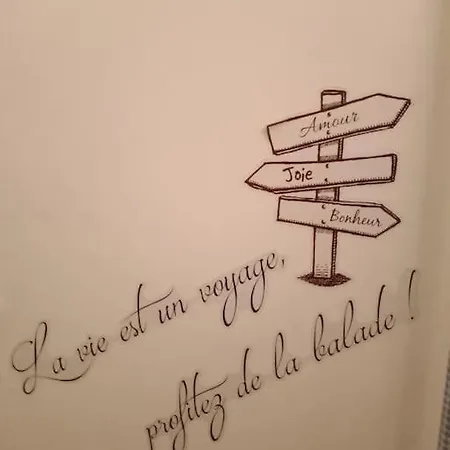 Amour
Joie
Bonheur
La vie est un voyage,
profitez de la balade !